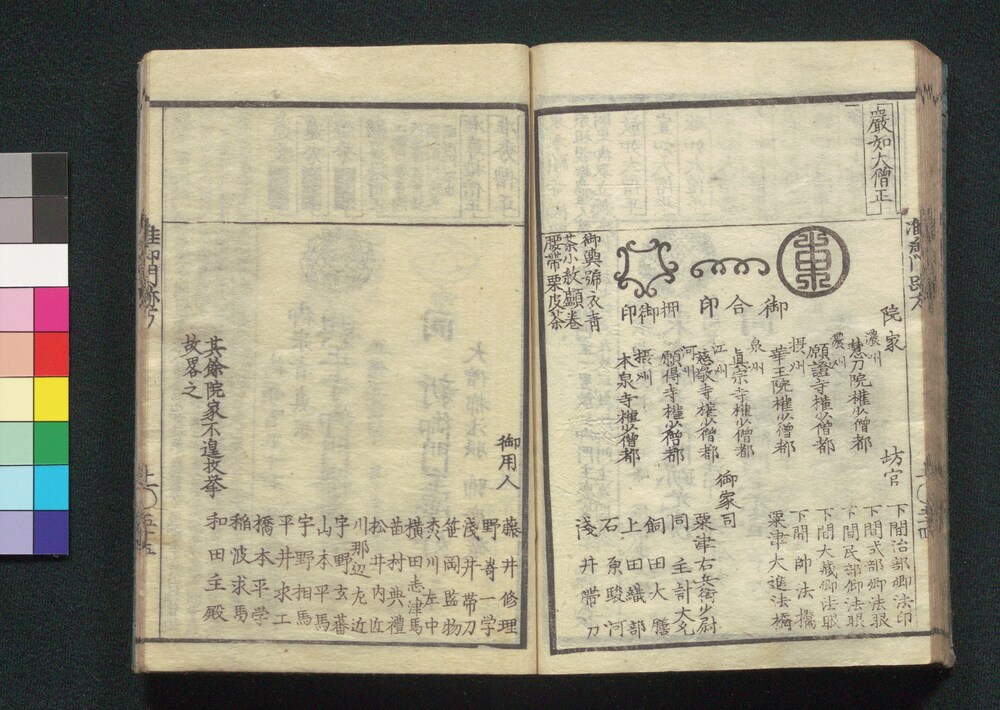 嚴如大僧正
東
御合印
押御印
御輿號衣青
茶小紋顱巻
腰帯栗皮茶
院家
濃州
慧刀院權少僧都
濃州
願證寺權少僧都
摂州
華王院權少僧都
泉州
眞宗寺權少僧都
江州
慈敬寺權少僧都
河州
願得寺權少僧都
摂州
本泉寺權少僧都
坊官
下間治部卿法印
下間式部卿法眼
下間民部卿法眼
下間大蔵卿法眼
下間帥法橋
粟津大進法橋
御家司
粟津右兵衛少尉
同主計大允
飼田大膳
上田織部
石原駿河
浅井帯刀
御用人
藤井修理
野嵜一学
浅井帯刀
笹岡監物
粂川左中
横田志津馬
苗村典禮
松井内近
川那辺左近
宇野玄蕃
山本平馬
宇野相馬
平井求工
橋本平学
稲波求馬
和田主殿
其餘院家不遑枚挙
故畧之